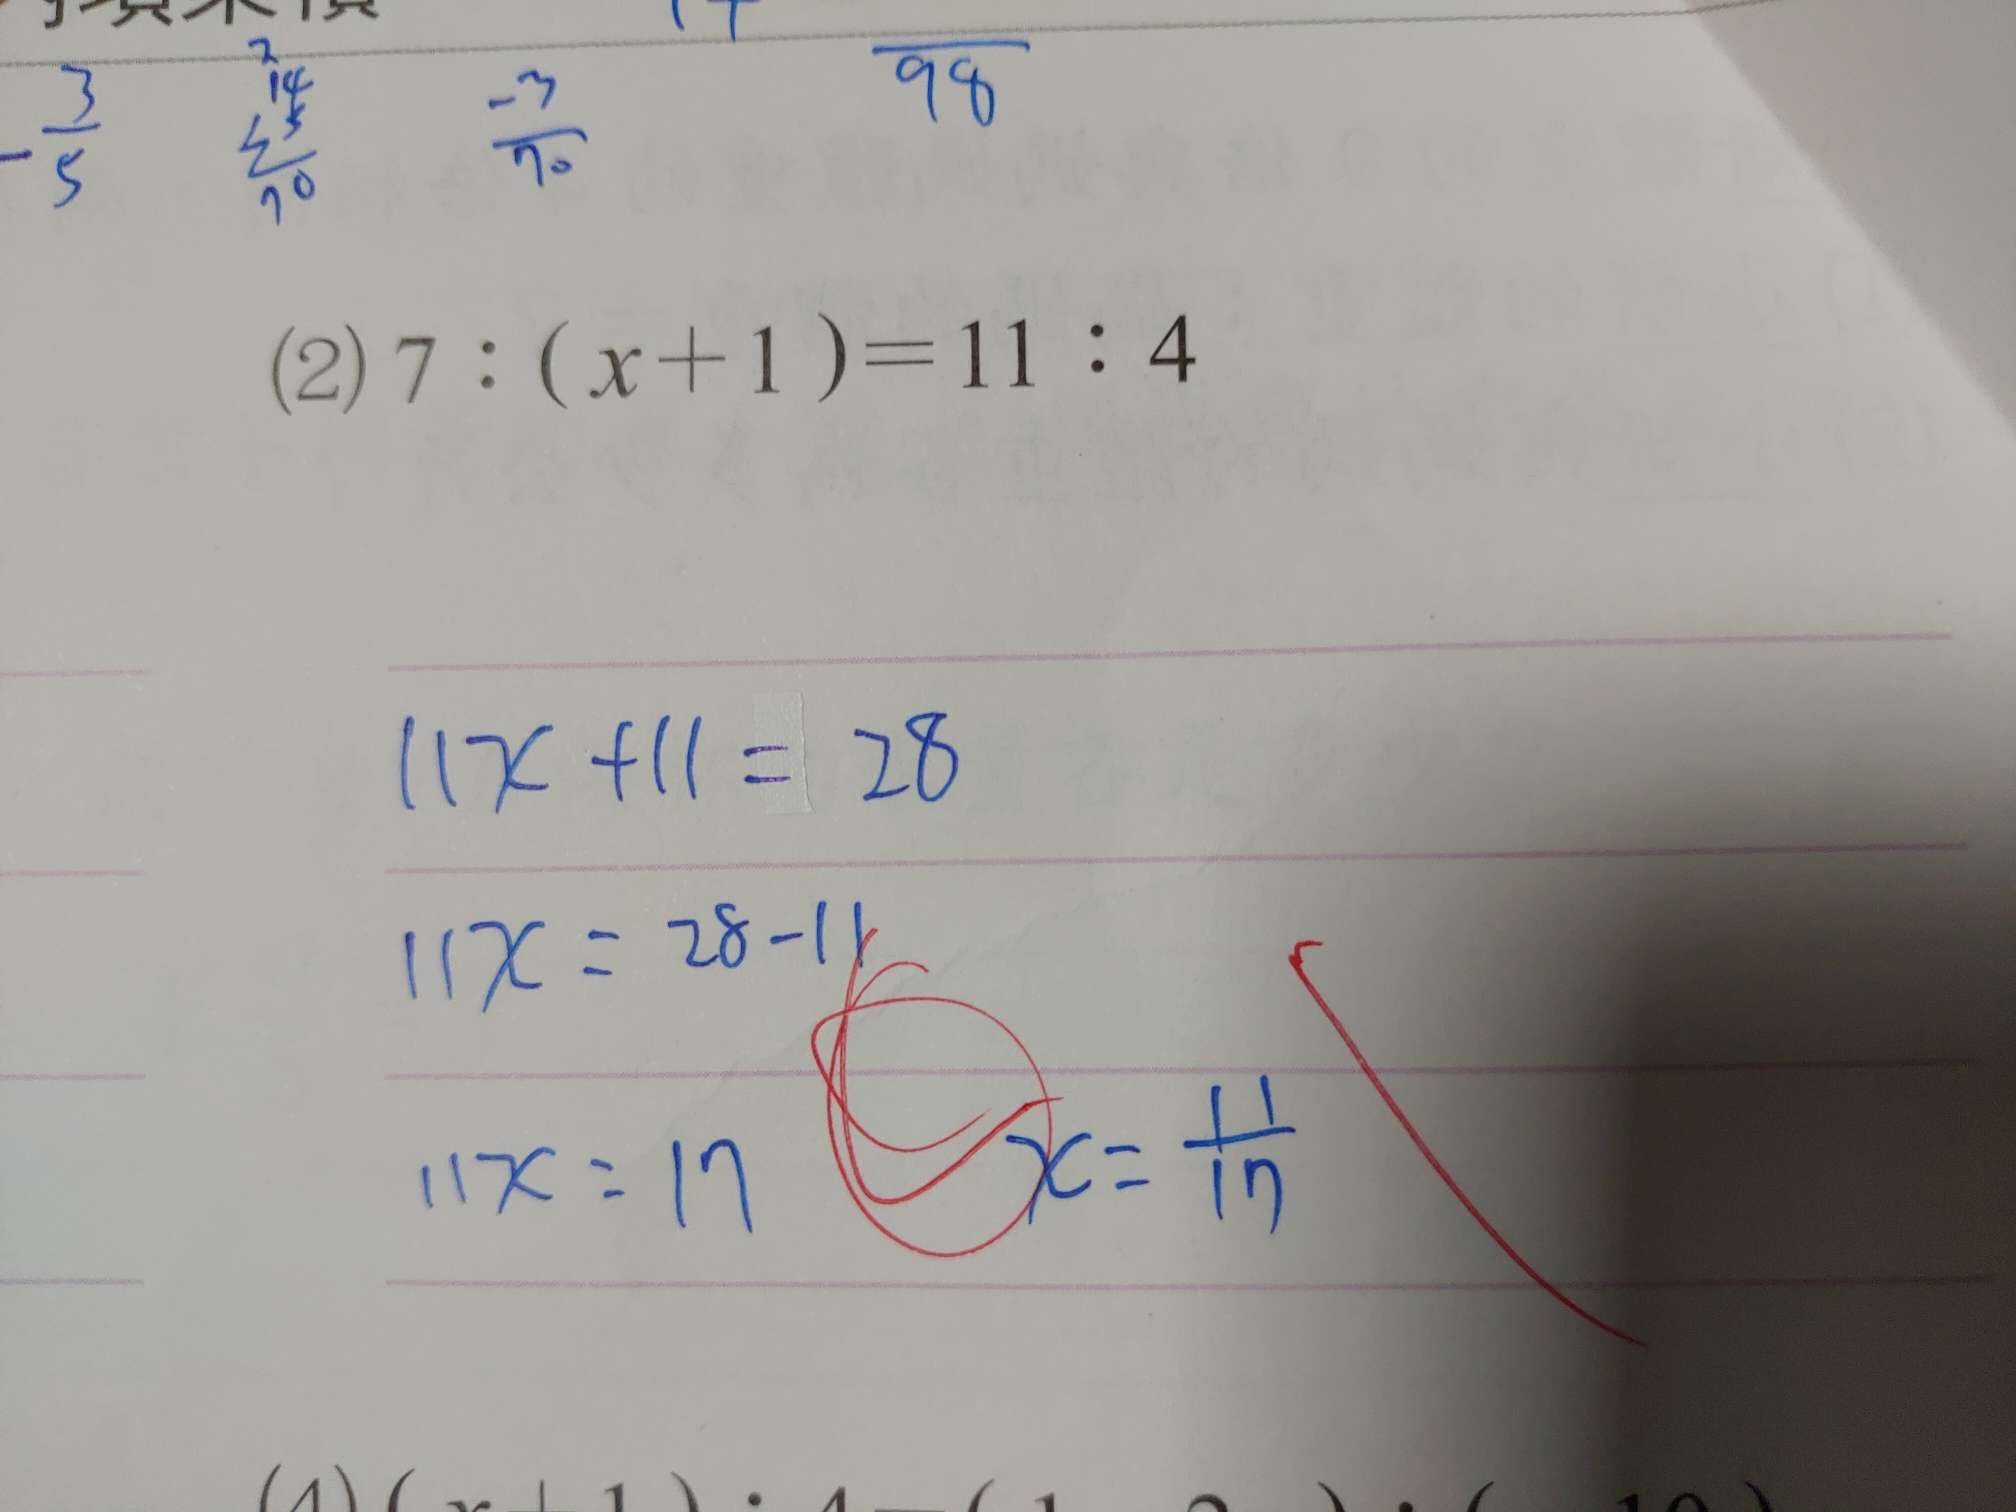 98
-3/5 2 14 70 -3/70
(2) 7：(x+1)=11：4
11x+11=28
11x=28-11
11x=17 x=11/17